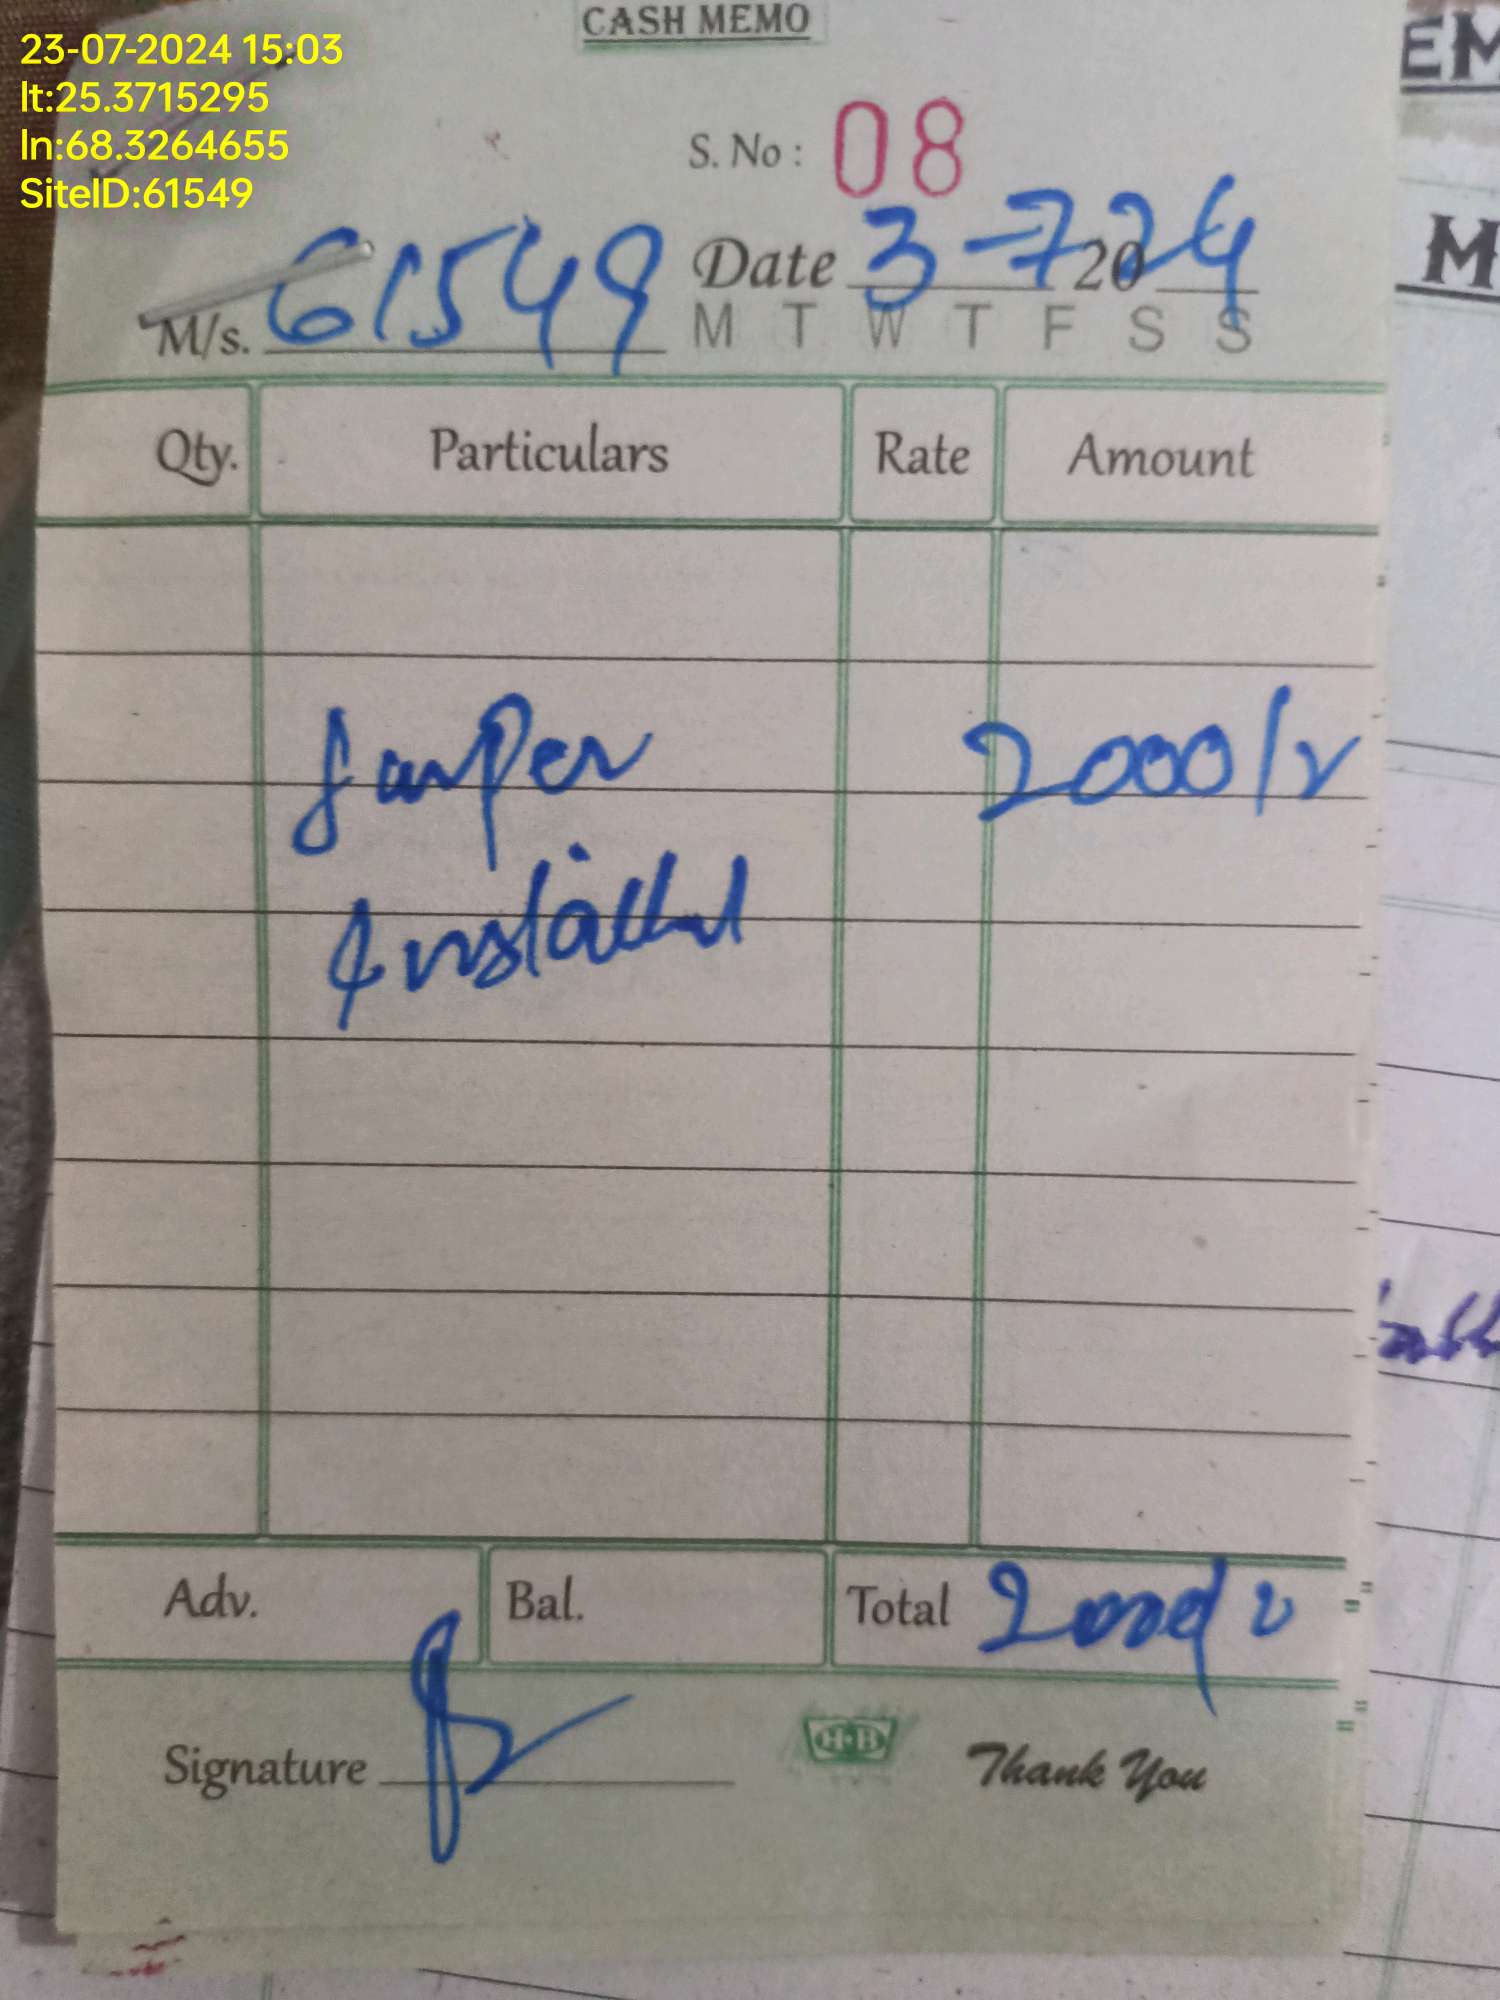 23-07-2024 15:03
lt:25.3715295
ln:68.3264655
SiteID:61549
CASH MEMO
S. No : 08
M/s. 61549 Date 3-7 2024
M T W T F S S
Qty. Particulars Rate Amount
Jamper 2000/
Installed
Adv. Bal. Total 2000/
Signature
H·B
Thank You
EM
M